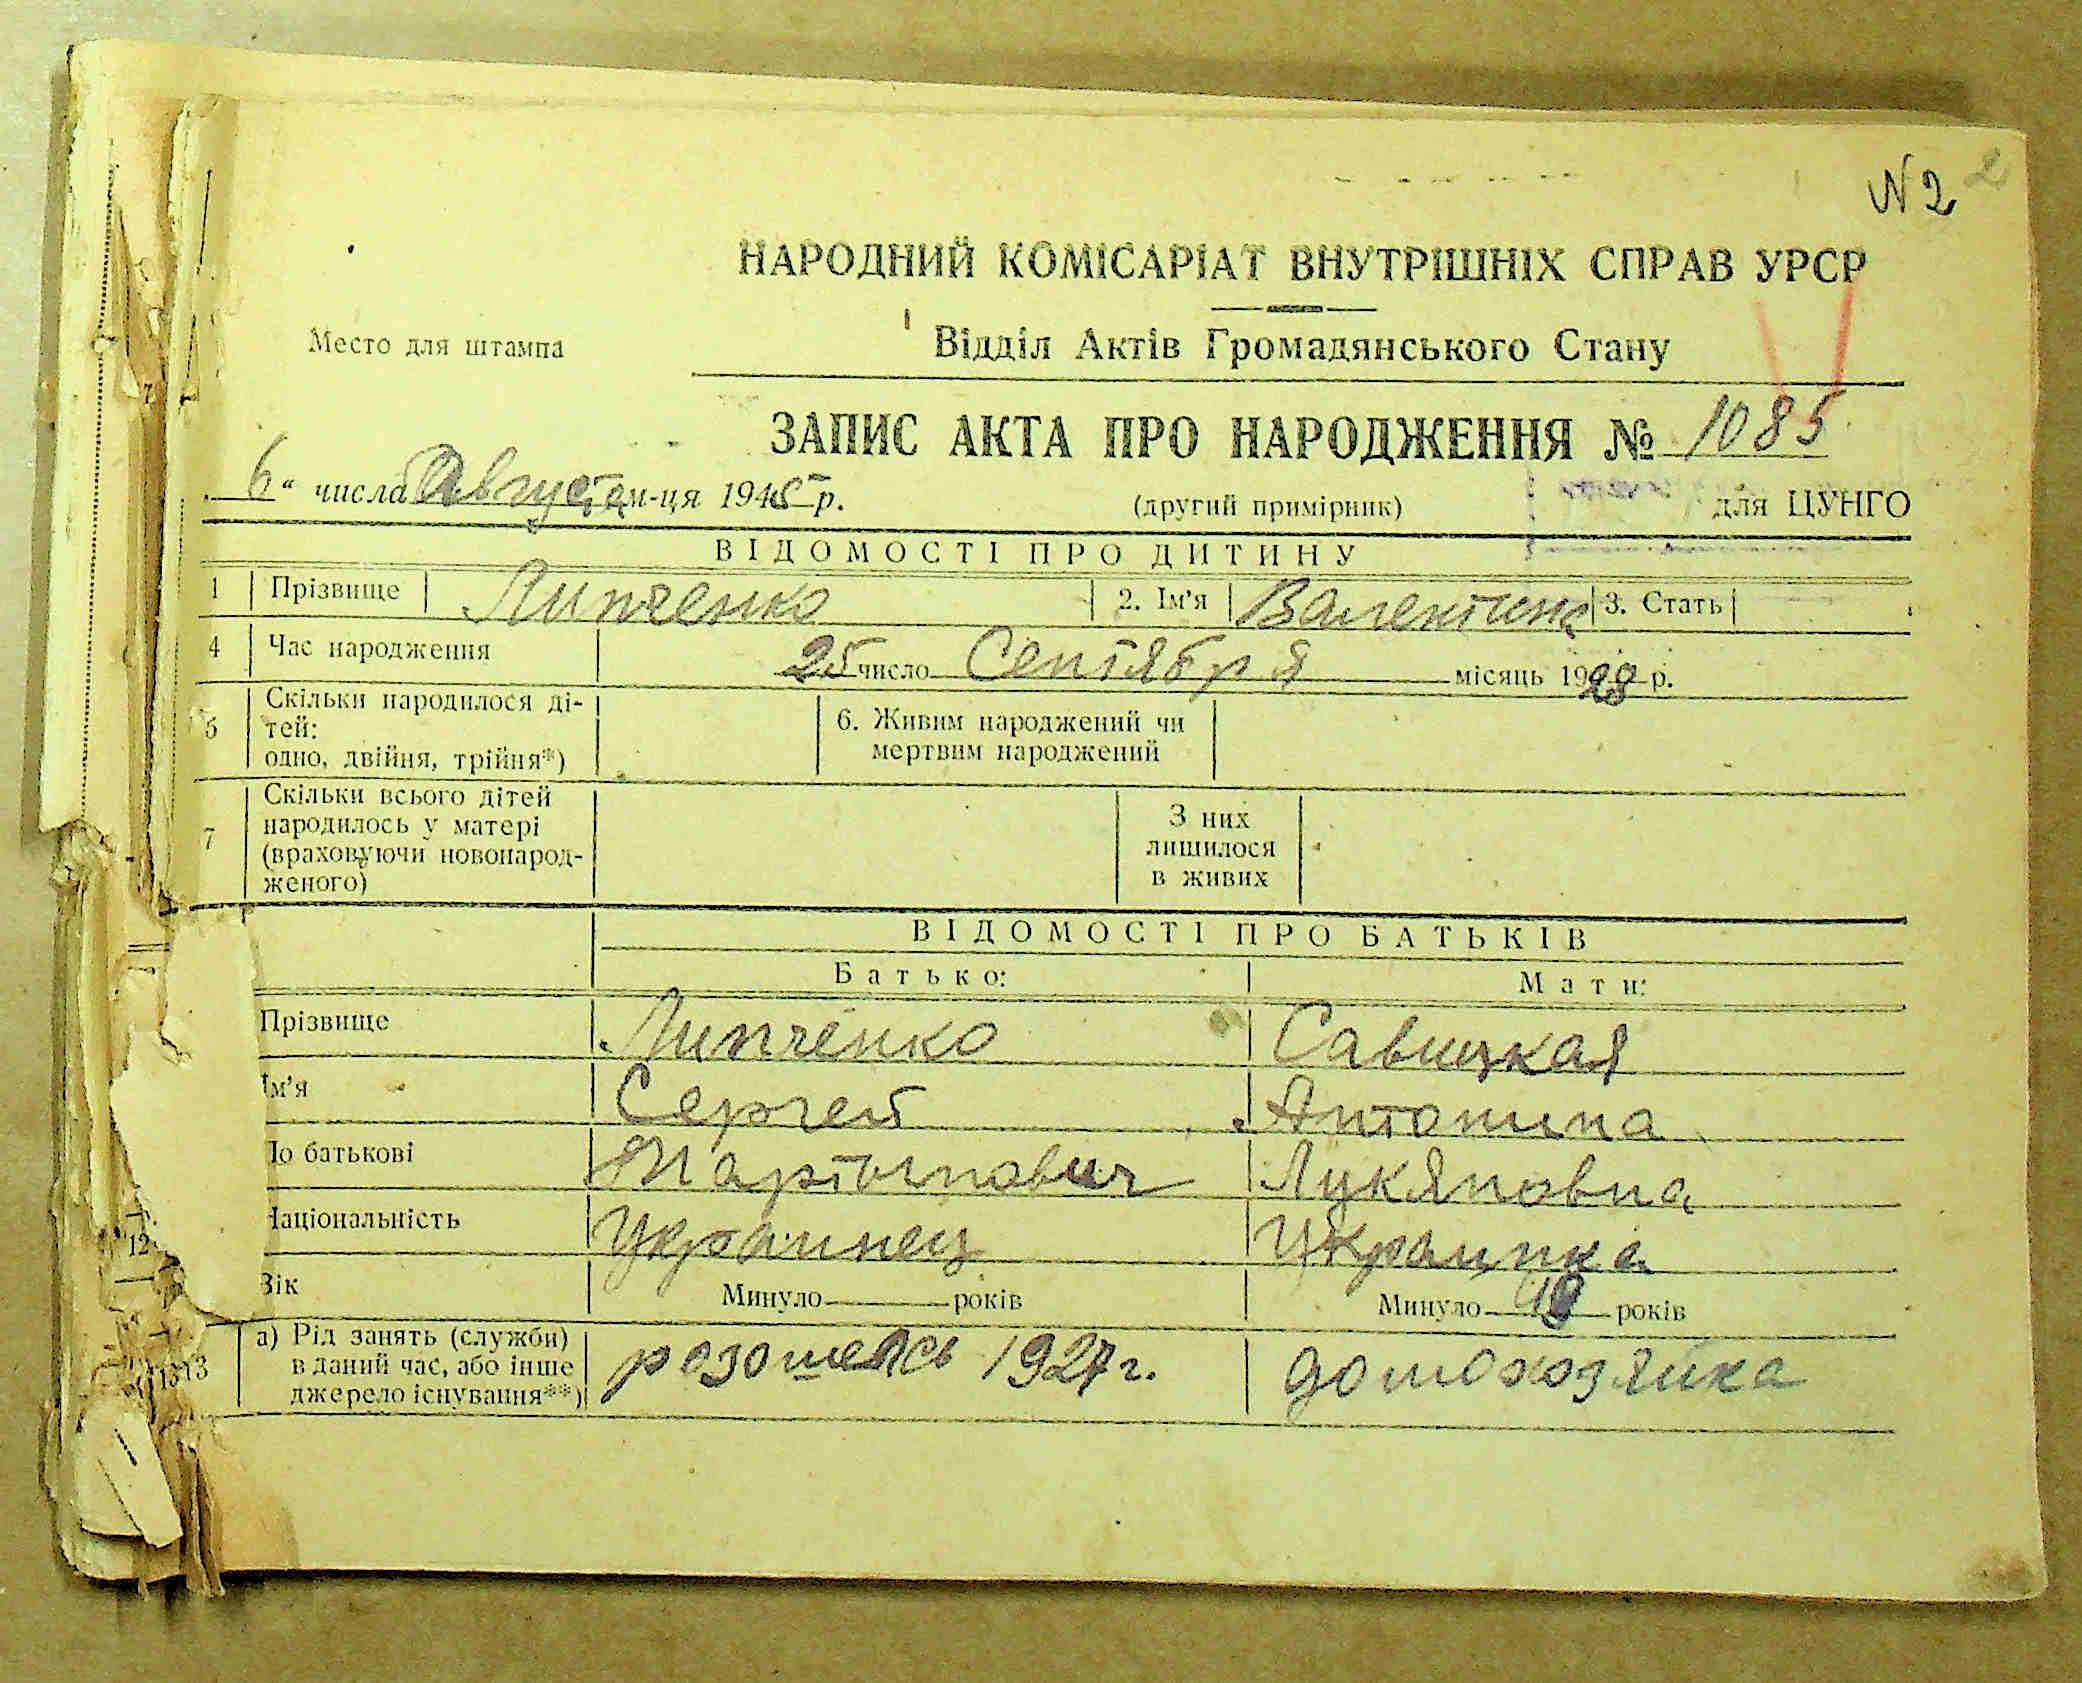 N 2 2
НАРОДНИЙ КОМІСАРІАТ ВНУТРІШНІХ СПРАВ УРСР
Место для штампа
Відділ Актів Громадянського Стану
ЗАПИС АКТА ПРО НАРОДЖЕННЯ № 1085
„6“ числа Августа м-ця 1945 р.
(другий примірник) для ЦУНГО
ВІДОМОСТІ ПРО ДИТИНУ
1 Прізвище Липченко 2. Ім'я Валентина 3. Стать
4 Час народження 25 число Сентября місяць 1928 р.
5 Скільки народилося ді-
тей:
одно, двійня, трійня*)
6. Живим народжений чи
мертвим народжений
7 Скільки всього дітей
народилось у матері
(враховуючи новонарод-
женого)
З них
лишилося
в живих
ВІДОМОСТІ ПРО БАТЬКІВ
Батько: Мати:
Прізвище Липченко Савицкая
Ім'я Сергей Антонина
По батькові Мартынович Лукяновна
Національність Украинец Украинка
12
Вік Минуло років Минуло років
13 13 а) Рід занять (служби)
в даний час, або інше
джерело існування**)
розошлсь 1927 г. домохозяйка